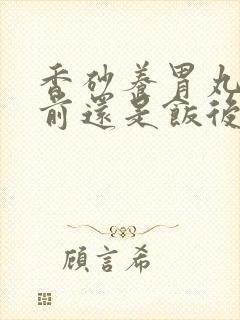 香砂養胃丸
前還是飯後
顧言希